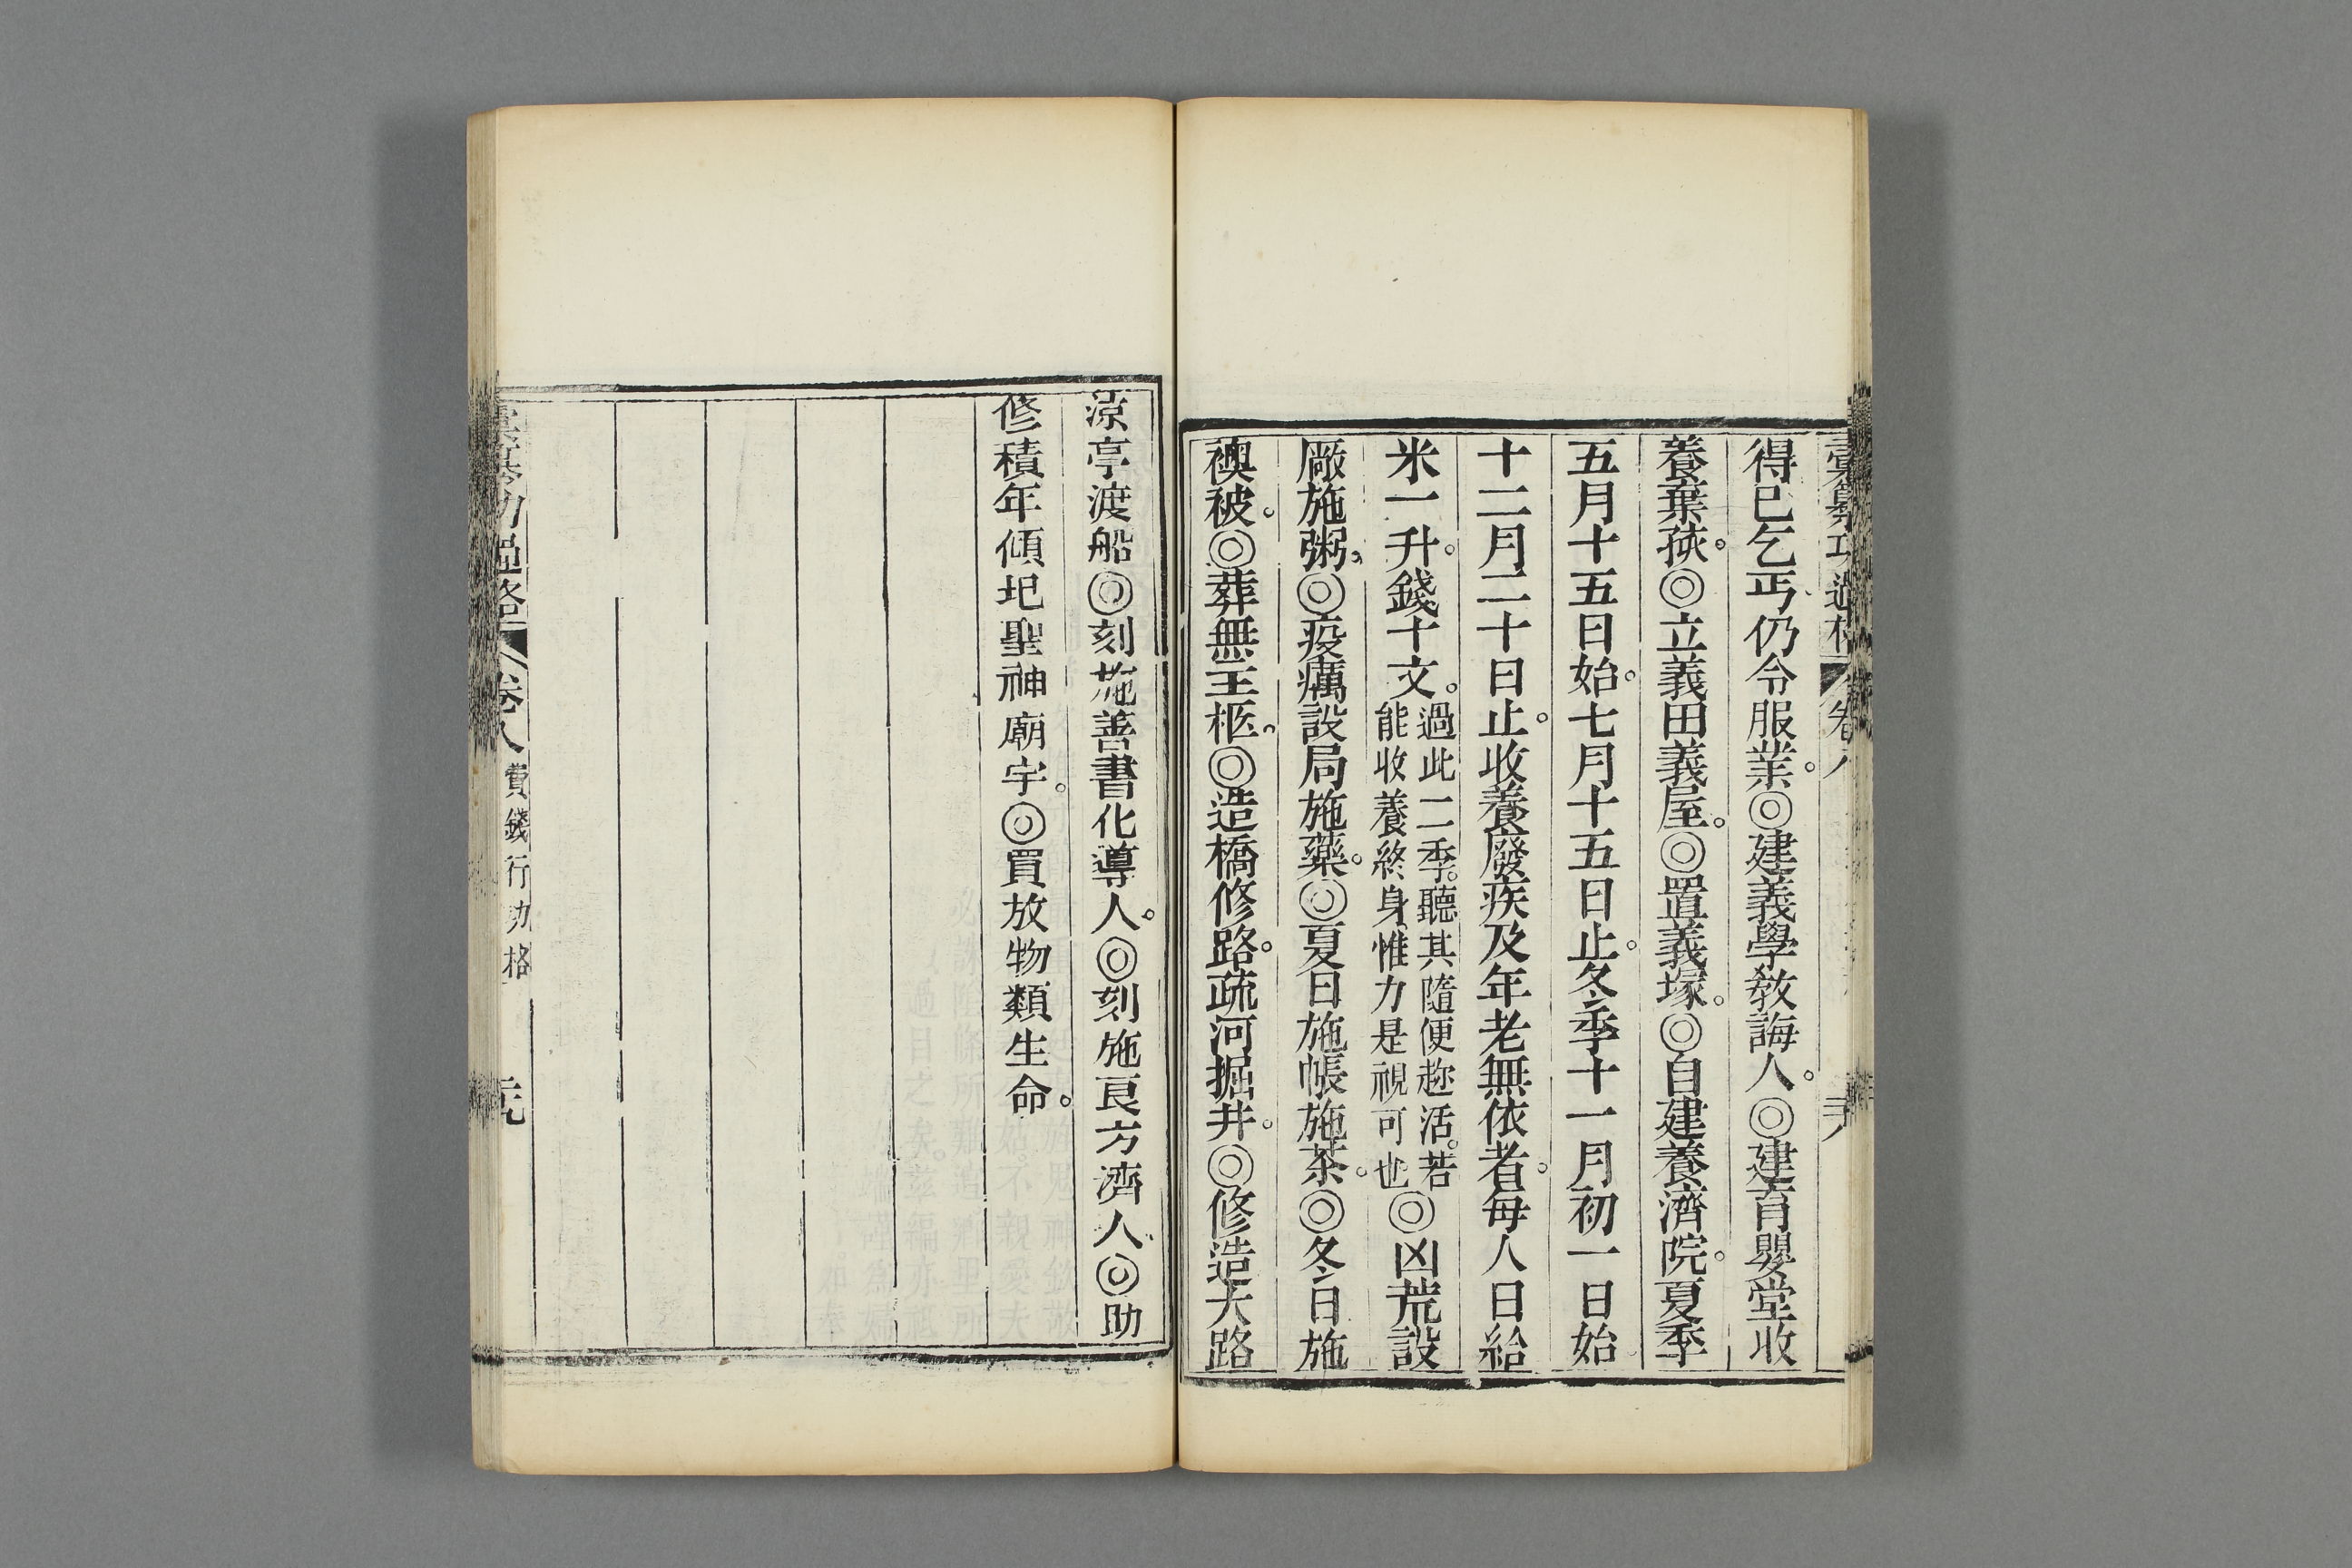 彙纂功過格 卷八
得已乞丐仍令服業。◎建義學教誨人。◎建育嬰堂收
養棄孩。◎立義田義屋。◎置義塚。◎自建養濟院。夏季
五月十五日始。七月十五日止。冬季十一月初一日始
十二月二十日止。收養廢疾及年老無依者。每人日給
米一升。錢十文。過此二季。聽其隨便趂活。若能收養終身惟力是視可也◎凶荒設
厰施粥。◎疫癘設局施藥。◎夏日施帳施茶。◎冬日施
襖被。◎葬無主柩。◎造橋修路。疏河掘井。◎修造大路
凉亭渡船◎刻施善書化導人。◎刻施良方濟人◎助
修積年傾圮聖神廟宇。◎買放物類生命。
彙纂功過格 卷八 費錢行功格